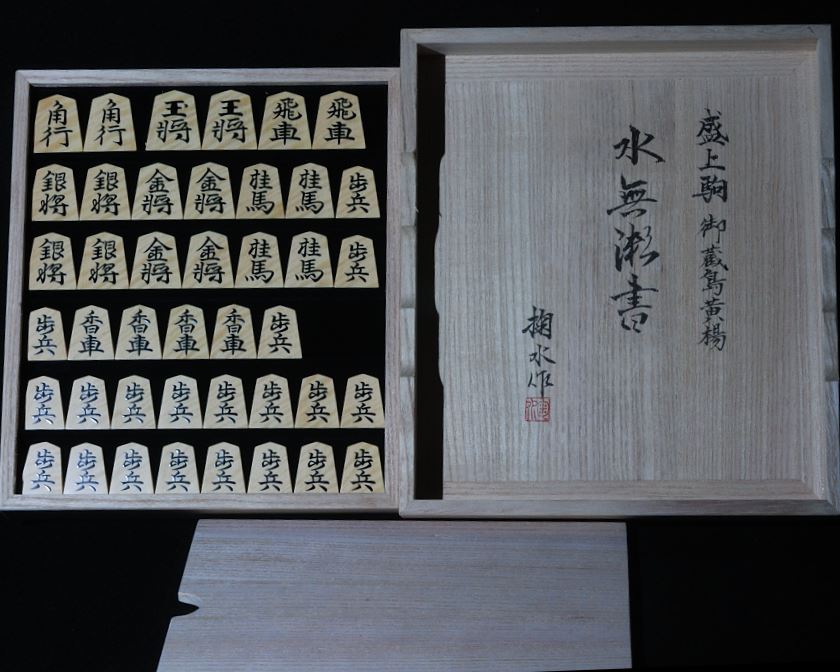 角行 角行 玉将 王将 飛車 飛車
銀将 銀将 金将 金将 桂馬 桂馬 歩兵
銀将 銀将 金将 金将 桂馬 桂馬 歩兵
歩兵 香車 香車 香車 香車 歩兵
歩兵 歩兵 歩兵 歩兵 歩兵 歩兵 歩兵 歩兵
歩兵 歩兵 歩兵 歩兵 歩兵 歩兵 歩兵 歩兵
盛上駒 御蔵島黄楊
水無瀬書
掬水作